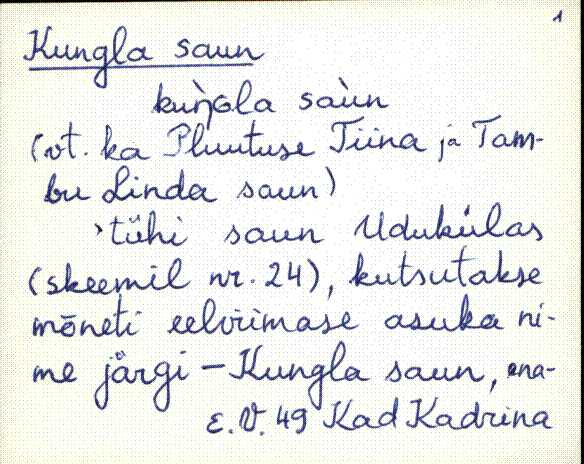 1
Kungla saun
kuŋ̀ola saùn
(vt. ka Pluutuse Tiina ja Tam-
bu Linda saun)
tühi saun Udukülas
(skeemil nr. 24), kutsutakse
mõneti eelviimase asuka ni-
me järgi – Kungla saun, ena-
E.V. 49 Kad Kadrina